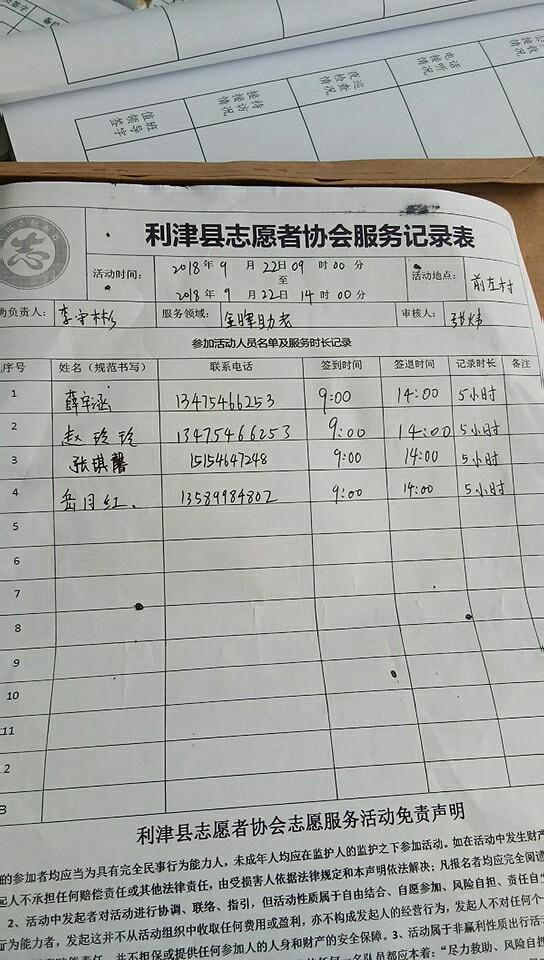 电话接听情况
夜巡检查情况
接待接访情况
值班领导签字
志
利津县志愿者协会服务记录表
活动时间: 2018年9月22日09时00分
至
2018年9月22日14时00分
活动地点: 前左村
动负责人: 李守彬 服务领域: 金晖助老 审核人: 张炜
参加活动人员名单及服务时长记录
序号 姓名（规范书写） 联系电话 签到时间 签退时间 记录时长 备注
1 薛宇涵 13475466253 9:00 14:00 5小时
2 赵玲玲 13475466253 9:00 14:00 5小时
3 张琪馨 15154647248 9:00 14:00 5小时
4 岳月红 13589984802 9:00 14:00 5小时
5
6
7
8
9
10
11
2
3
利津县志愿者协会志愿服务活动免责声明
的参加者均应当为具有完全民事行为能力人，未成年人均应在监护人的监护之下参加活动。如在活动中发生财产
起人不承担任何赔偿责任或其他法律责任，由受损害人依据法律规定和本声明依法解决；凡报名者均应完全阅读
2、活动中发起者对活动进行协调、联络、指引，但活动性质属于自由结合、自愿参加、风险自担、责任自
行为能力者，发起这并不从活动组织中收取任何费用或盈利，亦不构成发起人的经营行为，发起人不对任何个
赔偿责任，并不担保或提供任何参加人的人身和财产的安全保障。3、活动属于非赢利性质出行活
的任何一名队员都应本着："尽力救助、风险自担